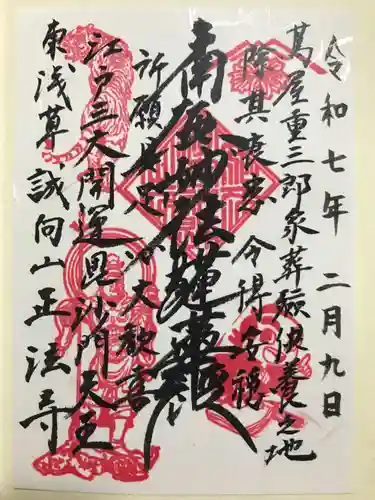 令和七年 二月九日
蔦屋重三郎家葬供養之地
除其衰患 令得安穏
南無妙法蓮華経
祈願満足 心大歓喜
江戸三大開運毘沙門天王
東浅草 誠向山正法寺